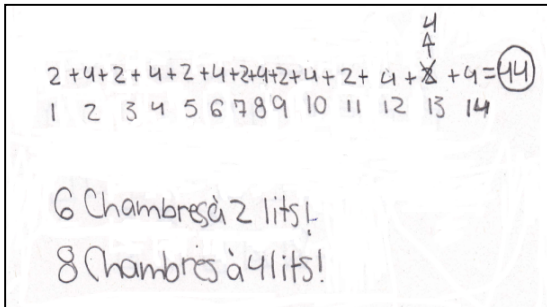 4
4
2+4+2+4+2+4+2+4+2+4+2+4+2+4=44
1 2 3 4 5 6 7 8 9 10 11 12 13 14
6 Chambres à 2 lits!
8 Chambres à 4 lits!